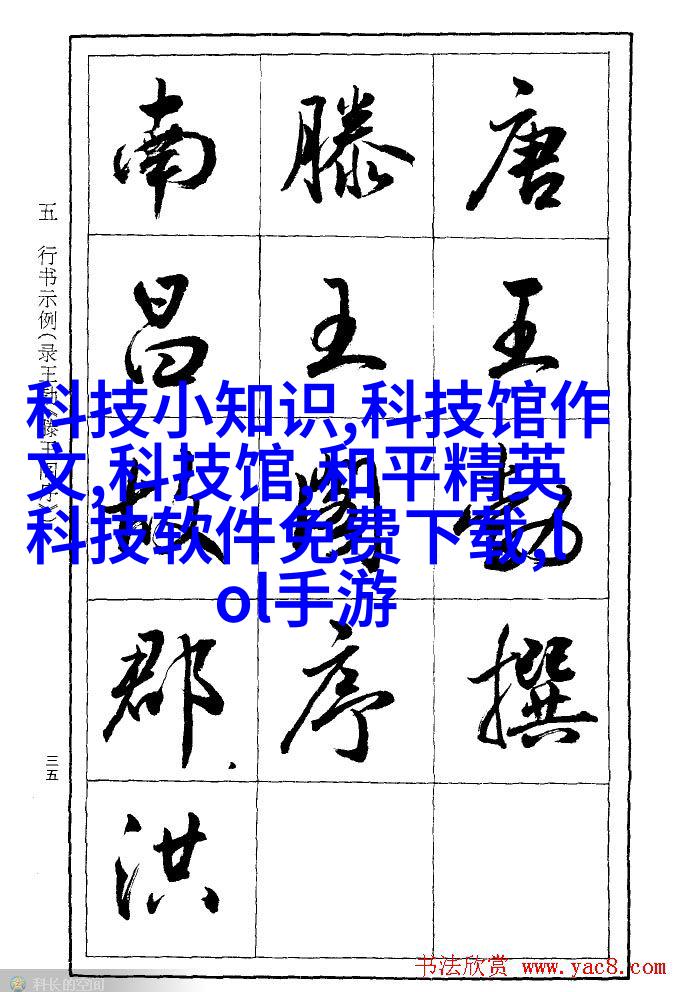 唐王勃撰
滕王阁序
南昌故郡洪
五 行书示例(录王勃《滕王阁序》)
三五
科技小知识,科技馆作
文,科技馆,和平精英
科技软件免费下载,l
ol手游
书法欣赏 www.yac8.com
科长的空间